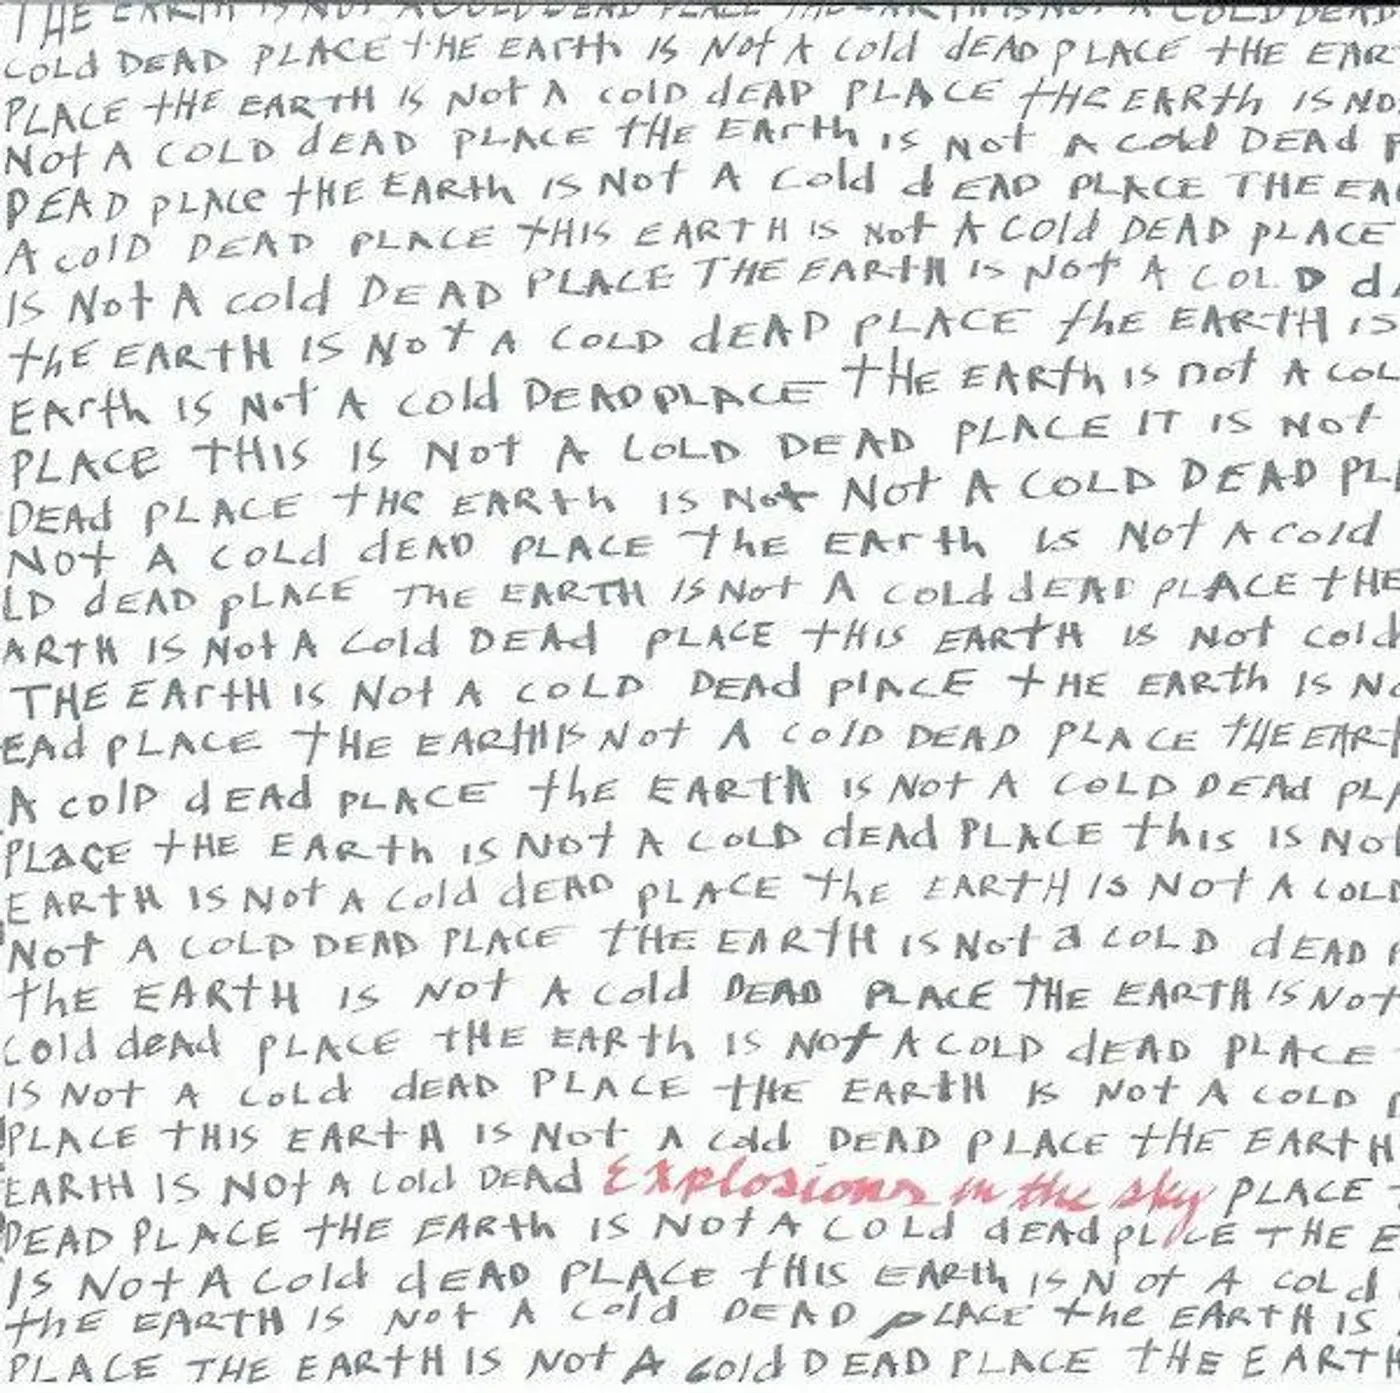 THE EARTH IS NOT A COLD DEAD PLACE THE EARTH IS NOT A COLD DEAD
COLd DEAD PLACE tHE EARth IS Not A cold dEAD pLACE tHE EAR
PLACE tHE EARTH IS Not A coLD dEAD PLACE tHE EARth IS NO
Not A COLD dEAD PLACE tHE EArth is Not A cold DEAd P
DEAD pLAce tHE EARth IS Not A cold dEAD PLACE THE EA
A colD DEAD PLACE tHIS EARTH IS Not A Cold DEAD pLACE
IS Not A cold DEAD PLACE THE EARtH IS Not A COLD d
thE EARtH IS Not A COLD dEAD PLACE thE EARtH IS
EArth IS Not A cold DEAD PLACE tHE EARth IS not A COL
PLACE tHIS IS Not A COLD DEAD PLACE IT IS Not
DEAd PLACE tHE EARth IS Not Not A COLD DEAD PL
Not A COLd dEAD PLACE thE EArth is Not A Cold
LD dEAD pLACE THE EARTH IS Not A Cold dEAD PLACE tHE
ARtH IS Not A Cold DEAd PLACE tHIS EARtH IS Not Cold
THE EArtH IS Not A COLD DEAd plACE tHE EARth IS No
EAd PLACE tHE EARtH IS Not A colD DEAD PLACE tHE EAR
A colD dEAd PLACE thE EARTH IS Not A COLD DEAd PLA
PLaCE tHE EARth IS Not A COLD dEAd PLACE this IS No
EARtH IS Not A Cold dEAD pLACE thE EARTH IS Not A COLD
Not A COLD DEAD PLACE tHE EARtH IS Not a COLD dEAD P
thE EARtH IS Not A cold DEAD PLACE THE EARTH IS Not
Cold deAd PLACE tHE EARth IS Not A COLD dEAD PLACE
IS Not A Cold dEAD PLACE tHE EARtH IS Not A COLD P
PLACE tHIS EARtH IS Not A Cold DEAD PLACE tHE EARtH
EARtH IS Not A Cold DEAD Explosions in the sky PLACE
DEAD PLACE tHE EARth IS Not A COLd dEAd pLACE THE E
IS Not A Cold dEAD PLACE tHIS EARth IS Not A COLd
thE EARTH IS Not A Cold DEAD pLACE the EARtH IS
PLACE THE EARtH IS Not A Cold DEAD PLACE tHE EARTH